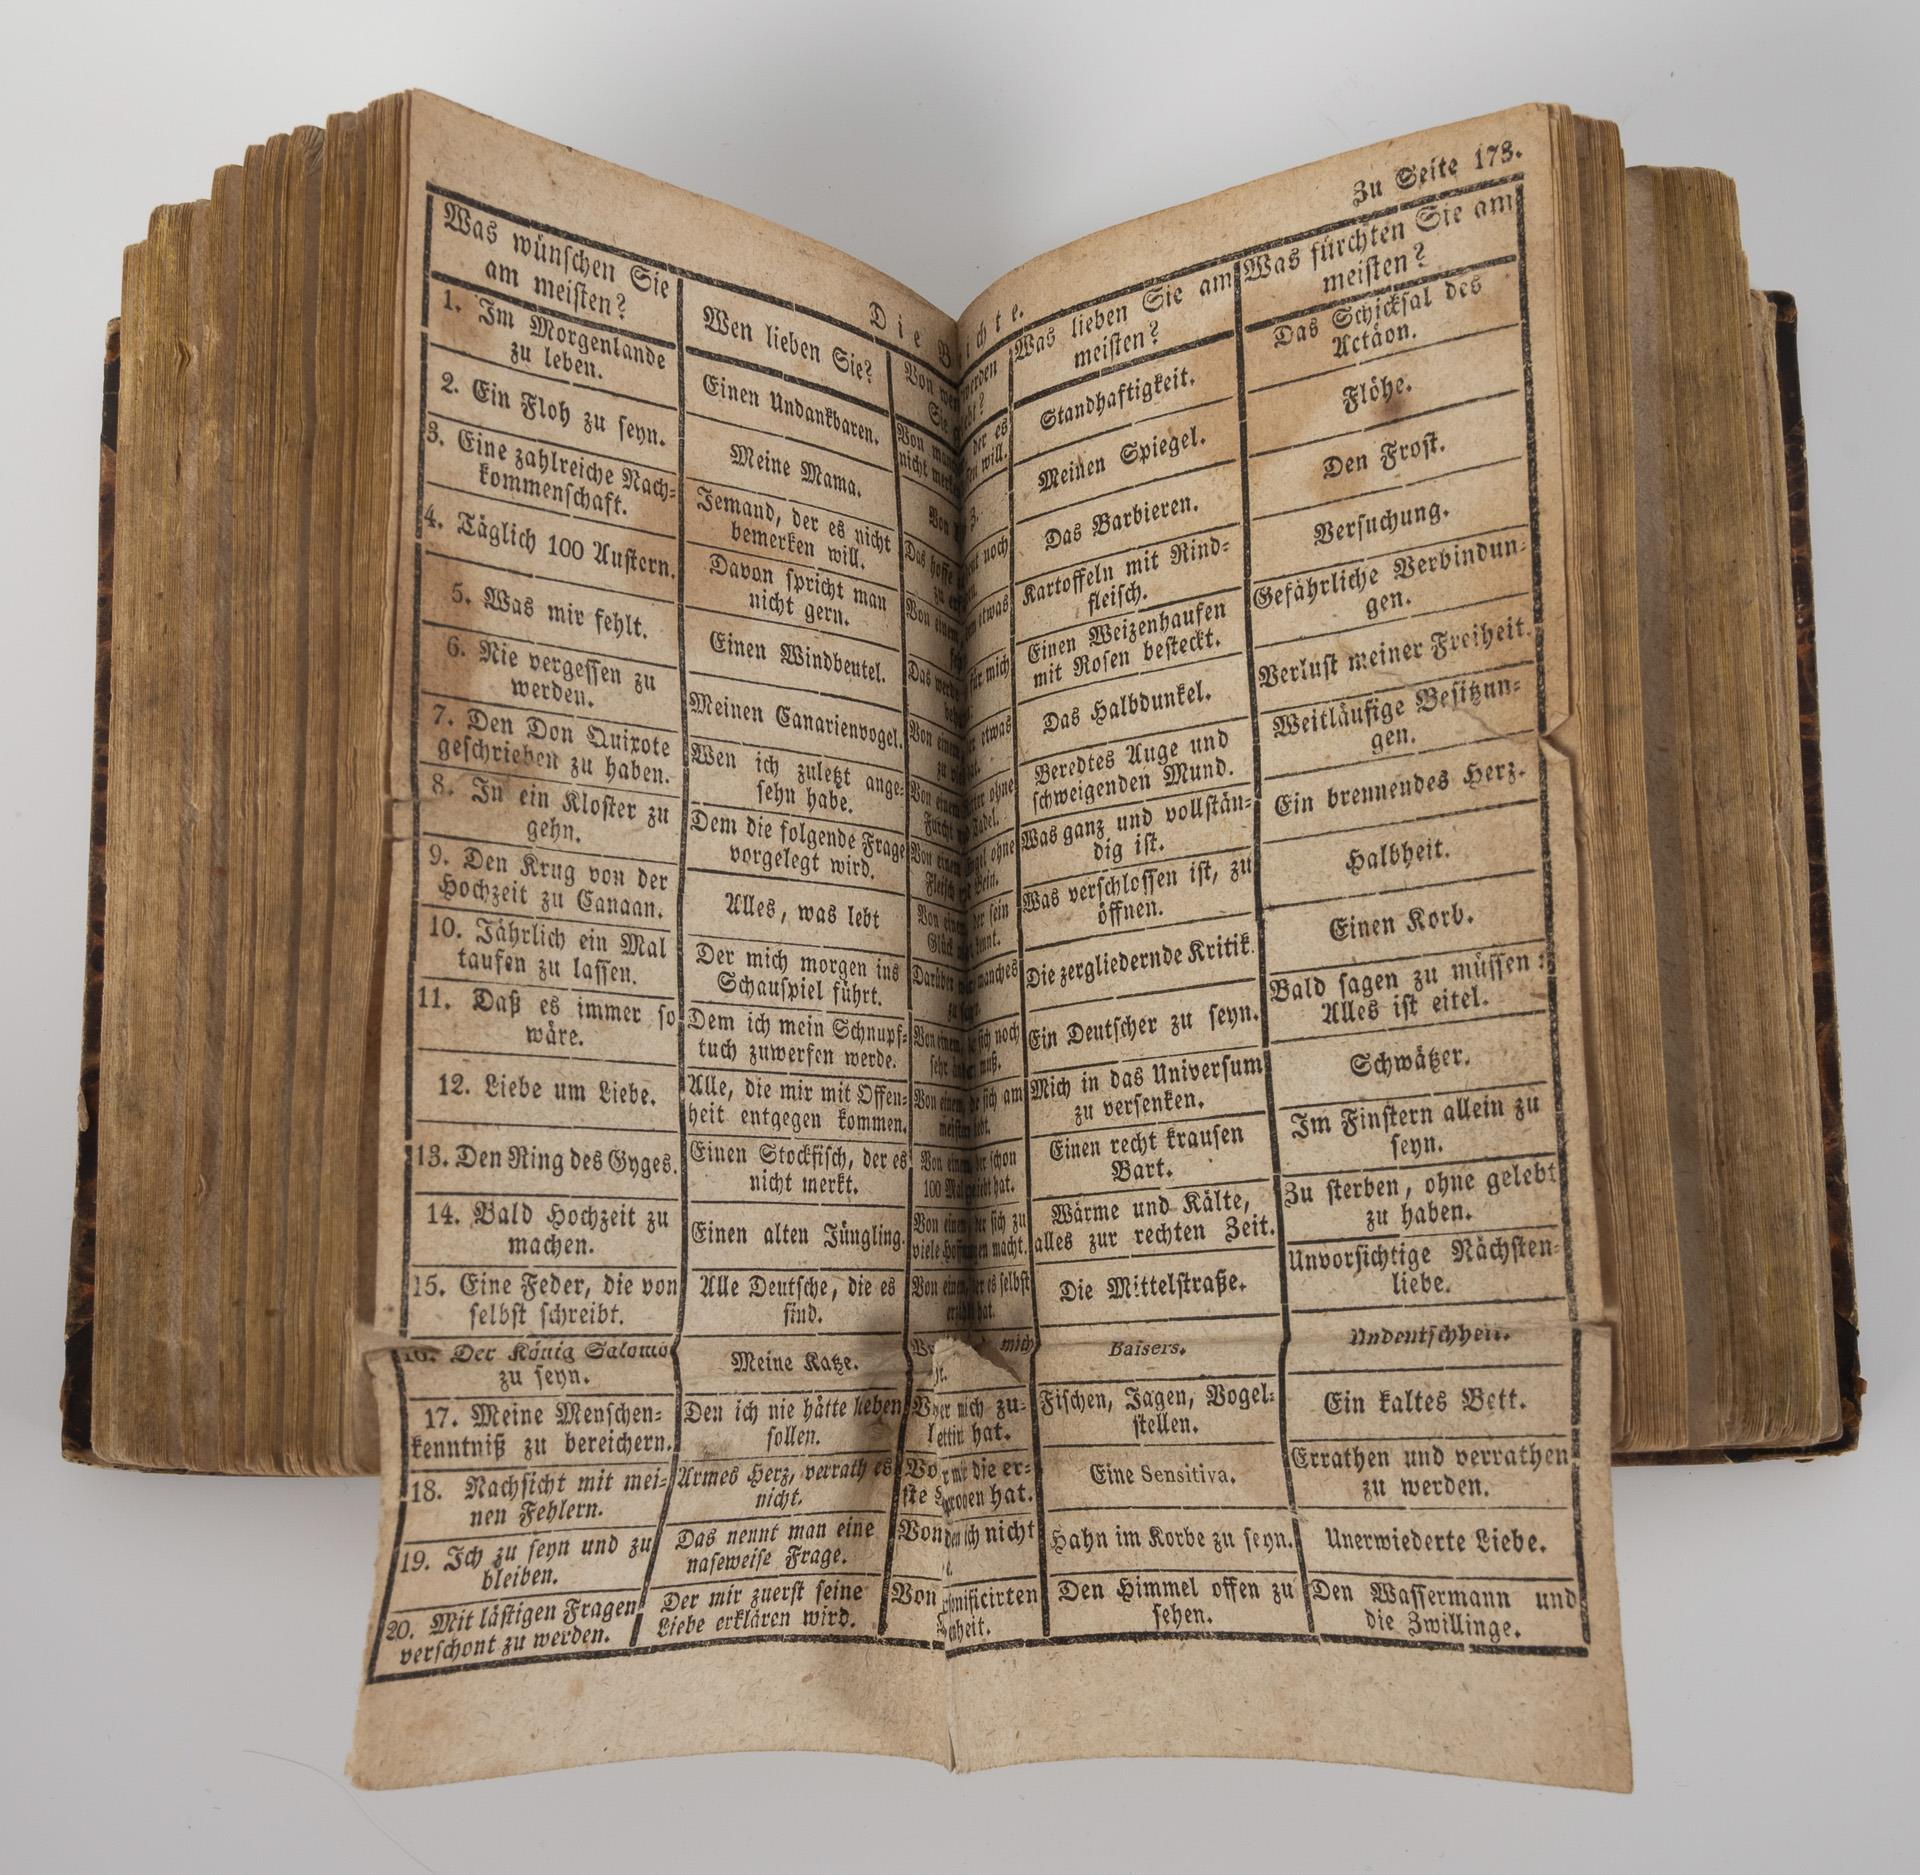 Zu Seite 173.
Die Beichte.
Was wünschen Sie
am meisten?
Wen lieben Sie?
Was lieben Sie am
meisten?
Was fürchten Sie am
meisten?
1. Im Morgenlande
zu leben.
Einen Undankbaren.
Standhaftigkeit.
Das Schicksal des
Actäon.
2. Ein Floh zu seyn.
Meine Mama.
Meinen Spiegel.
Flöhe.
3. Eine zahlreiche Nach-
kommenschaft.
Jemand, der es nicht
bemerken will.
Das Barbieren.
Den Frost.
4. Täglich 100 Austern.
Davon spricht man
nicht gern.
Kartoffeln mit Rind-
fleisch.
Versuchung.
5. Was mir fehlt.
Einen Windbeutel.
Einen Weizenhaufen
mit Rosen besteckt.
Gefährliche Verbindun-
gen.
6. Nie vergessen zu
werden.
Meinen Canarienvogel.
Das Halbdunkel.
Verlust meiner Freiheit.
7. Den Don Quixote
geschrieben zu haben.
Wen ich zuletzt ange-
sehn habe.
Beredtes Auge und
schweigenden Mund.
Weitläufige Besitzun-
gen.
8. In ein Kloster zu
gehn.
Dem die folgende Frage
vorgelegt wird.
Was ganz und vollstän-
dig ist.
Ein brennendes Herz.
9. Den Krug von der
Hochzeit zu Canaan.
Alles, was lebt
Was verschlossen ist, zu
öffnen.
Halbheit.
10. Jährlich ein Mal
taufen zu lassen.
Der mich morgen ins
Schauspiel führt.
Die zergliedernde Kritik.
Einen Korb.
11. Daß es immer so
wäre.
Dem ich mein Schnupf-
tuch zuwerfen werde.
Ein Deutscher zu seyn.
Bald sagen zu müssen:
Alles ist eitel.
12. Liebe um Liebe.
Alle, die mir mit Offen-
heit entgegen kommen.
Mich in das Universum
zu versenken.
Schwätzer.
13. Den Ring des Gyges.
Einen Stockfisch, der es
nicht merkt.
Von einem, der schon
100 Mal geliebt hat.
Einen recht krausen
Bart.
Im Finstern allein zu
seyn.
14. Bald Hochzeit zu
machen.
Einen alten Jüngling.
Von einem, der sich zu
viele Hoffnungen macht.
Wärme und Kälte,
alles zur rechten Zeit.
Zu sterben, ohne gelebt
zu haben.
15. Eine Feder, die von
selbst schreibt.
Alle Deutsche, die es
sind.
Von einem, der es selbst
hat.
Die Mittelstraße.
Unvorsichtige Nächsten-
liebe.
16. Der König Salomo
zu seyn.
Meine Katze.
mich
Baisers.
Undeutschheit.
17. Meine Menschen-
kenntniß zu bereichern.
Den ich nie hätte lieben
sollen.
mich zu-
hat.
Fischen, Jagen, Vogel-
stellen.
Ein kaltes Bett.
18. Nachsicht mit mei-
nen Fehlern.
Armes Herz, verrath es
nicht.
die er-
ste hat.
Eine Sensitiva.
Errathen und verrathen
zu werden.
19. Ich zu seyn und zu
bleiben.
Das nennt man eine
naseweise Frage.
Von ich nicht
Hahn im Korbe zu seyn.
Unerwiederte Liebe.
20. Mit lästigen Fragen
verschont zu werden.
Der mir zuerst seine
Liebe erklären wird.
Von
Den Himmel offen zu
sehen.
Den Wassermann und
die Zwillinge.